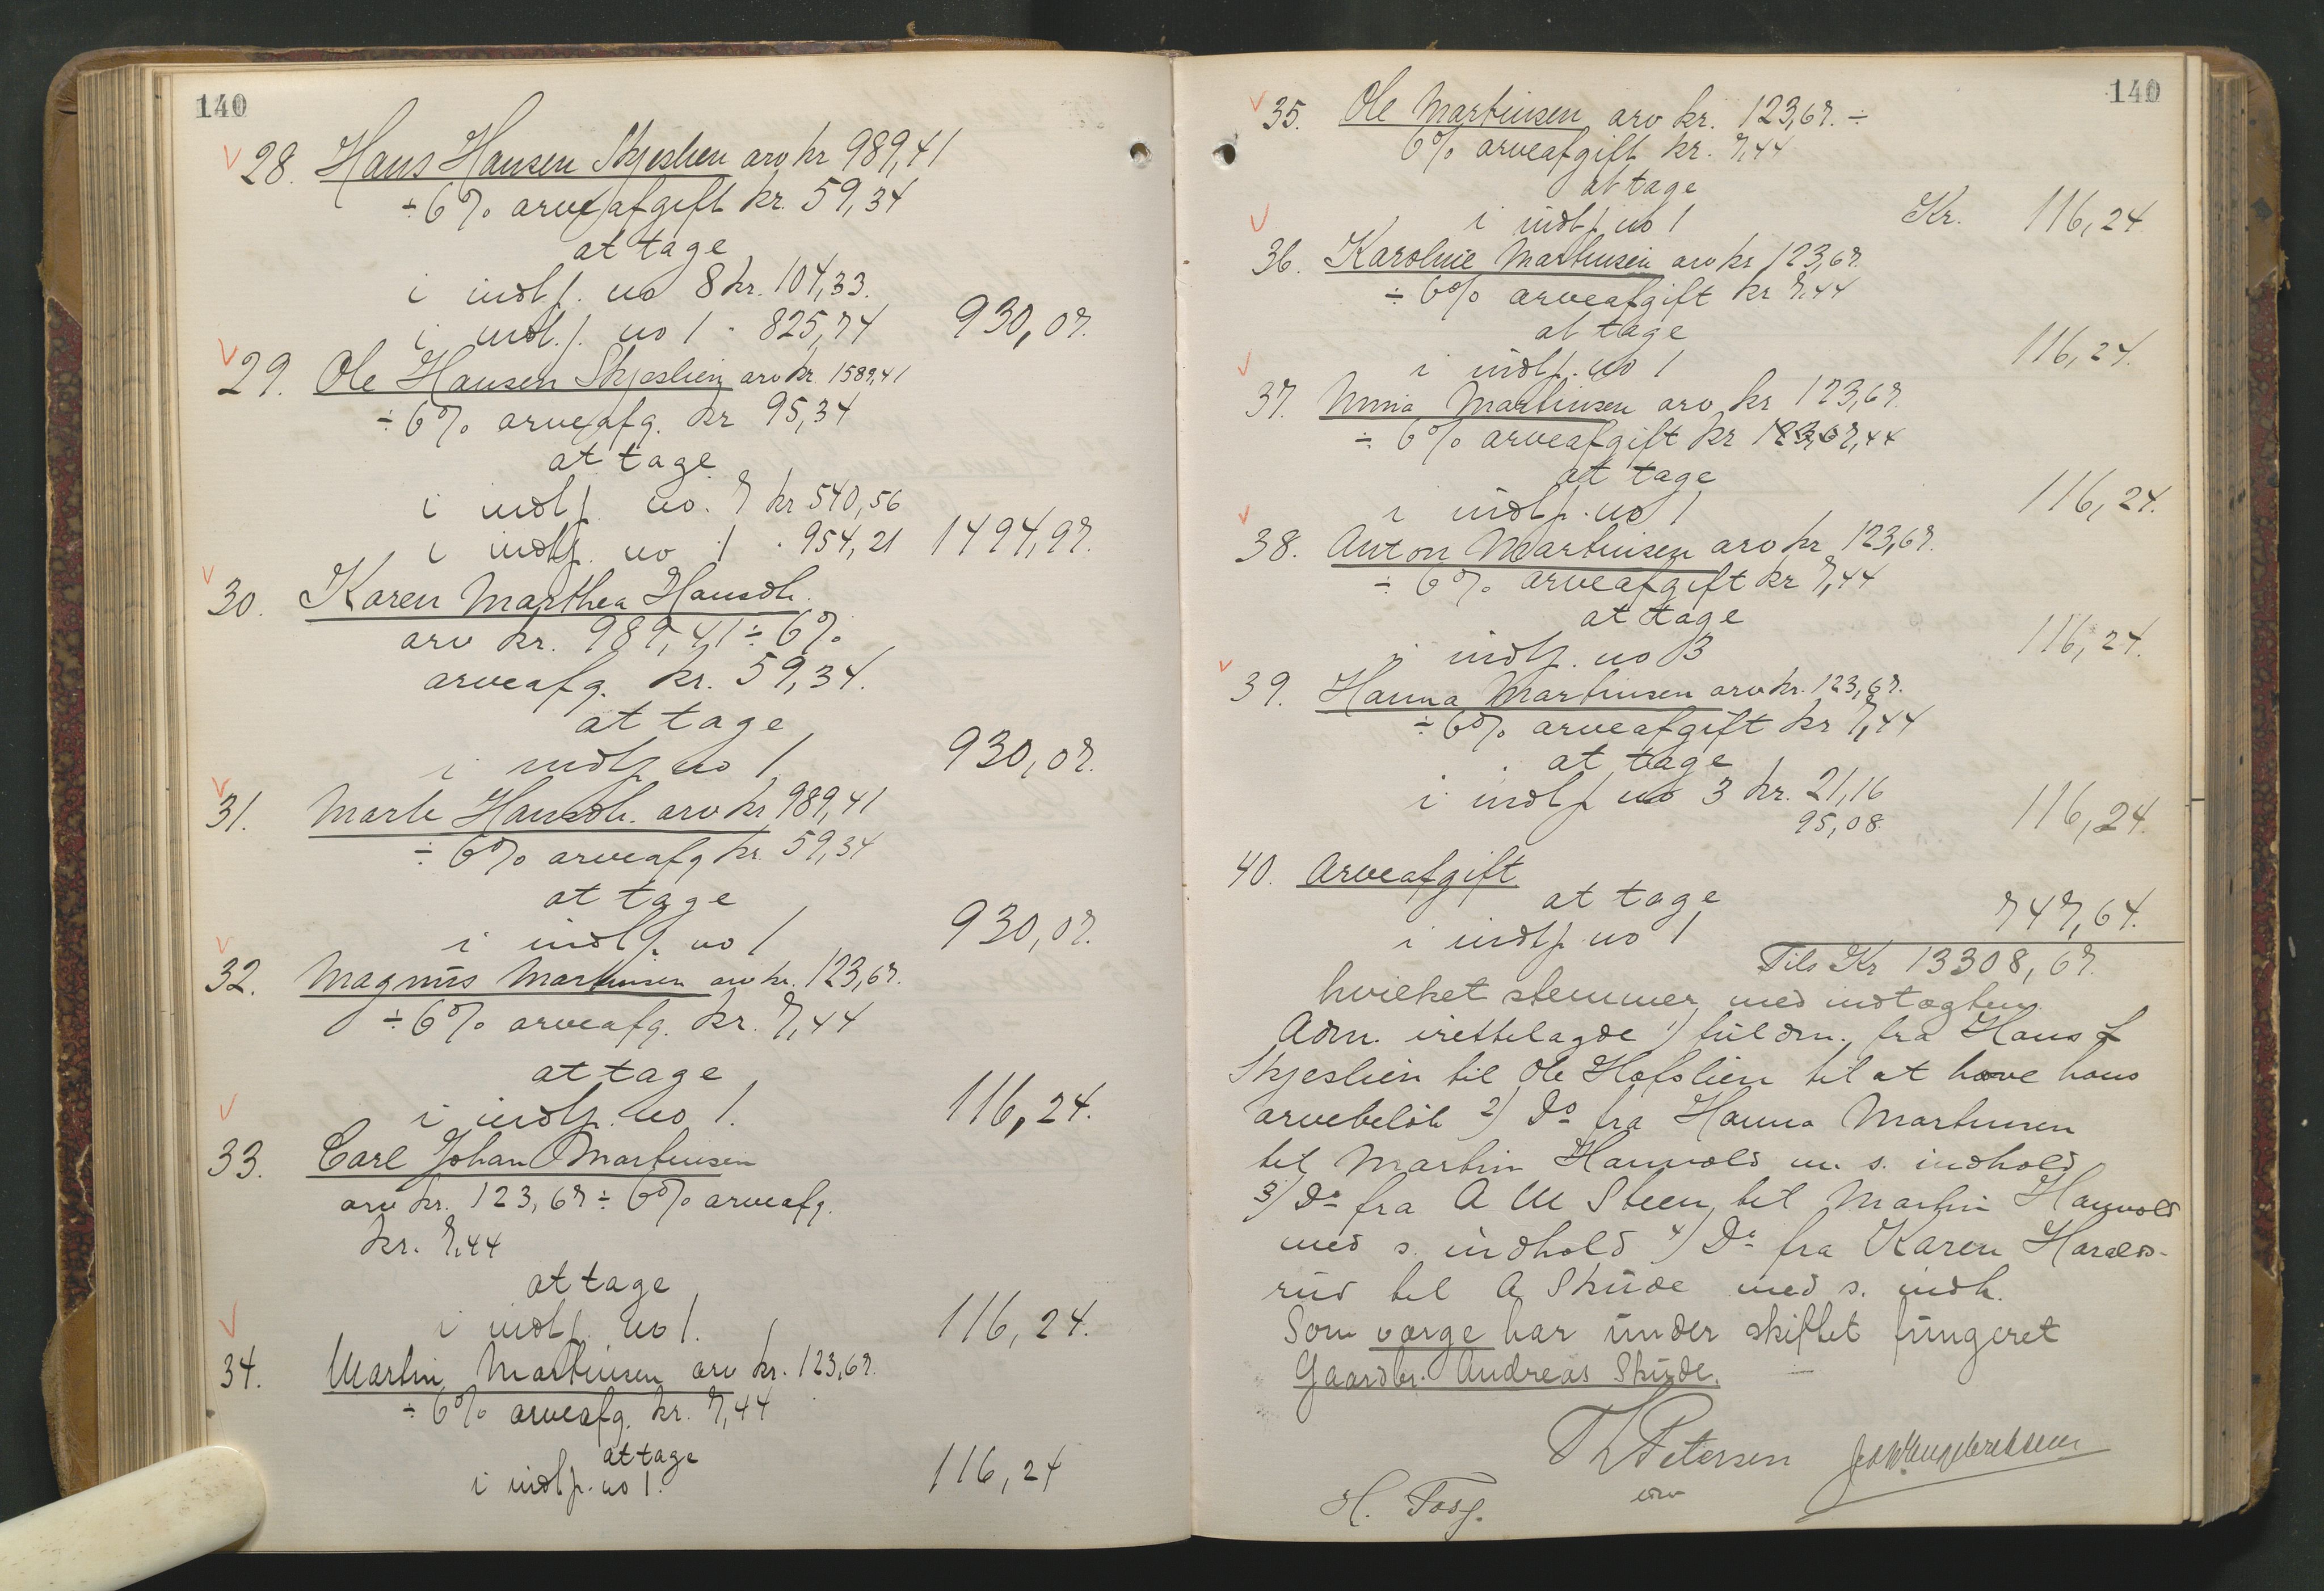 140
28. Hans Hansen Skjeslien arv kr 989,41
÷ 6% arveafgift kr. 59,34
at tage
i indt.p. no 8 kr. 104,33.
i indt.p. no 1 " 825,74 930,07.
29. Ole Hansen Skjeslien arv kr. 1589,41
÷ 6% arveafg. kr 95,34
at tage
i indt.p. no. 7 kr 540,56
i indtp. no 1 " 954,21 1494,97.
30. Karen Marthea Hansdt.
arv kr. 989,41 ÷ 6%
arveafg. kr. 59,34.
at tage
i indtp no 1 930,07.
31. Marte Hansdt. arv kr 989,41
÷ 6% arveafg kr. 59,34
at tage
i indtp. no 1 930,07.
32. Magnus Martinsen arv kr. 123,67.
÷ 6% arveafg. kr. 7,44
at tage
i indtp. no 1. 116,24.
33. Carl Johan Martinsen
arv kr. 123,67 ÷ 6% arveafg.
kr. 7,44
at tage
i indtp. no 1. 116,24.
34. Martin Martinsen arv kr. 123,67.
÷ 6% arveafg. kr. 7,44
at tage
i indtp. no 1. 116,24
140
35. Ole Martinsen arv kr. 123,67. ÷
6% arveafgift kr. 7,44
at tage
i indtp no 1 Kr. 116,24.
36. Karoline Martinsen arv kr 123,67.
÷ 6% arveafgift kr 7,44
at tage
i indtp. no 1 116,24.
37. Martinsen arv kr 123,67.
÷ 6% arveafgift kr 7,44
at tage
i indtp. no 1 116,24.
38. Anton Martinsen arv kr 123,67.
÷ 6% arveafgift kr 7,44
at tage
i indtp. no 3 116,24.
39. Hanna Martinsen arv kr. 123,67.
÷ 6% arveafgift kr 7,44
at tage
i indtp no 3 kr. 21,16
95,08 116,24.
40. Arveafgift
at tage
i indtp no 1 747,64.
Tils Kr 13308,67.
hvilket stemmer med indtægten.
Adm. irettelagde 1) fuldm. fra Hans
Skjeslien til Ole Hofslien til at hæve hans
arvebeløb 2) Do fra Hanna Martinsen
til Martin Hanvold m. s. indhold
3) Do fra A M Steen til Martin Hanvold
med s. indhold 4) Do fra Karen Haralds-
rud til A Skude med s. indh.
Som værge har under skiftet fungeret
Gaardbr. Andreas Skude.
Th Petersen
H.